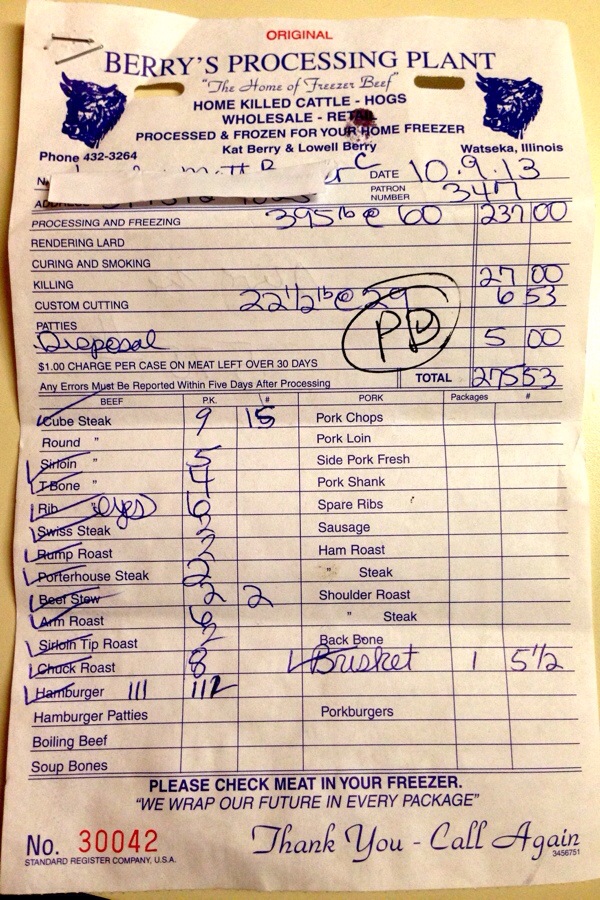 ORIGINAL
BERRY'S PROCESSING PLANT
"The Home of Freezer Beef"
HOME KILLED CATTLE - HOGS
WHOLESALE - RETAIL
PROCESSED & FROZEN FOR YOUR HOME FREEZER
Kat Berry & Lowell Berry
Phone 432-3264 Watseka, Illinois
DATE 10.9.13
PATRON NUMBER 347
ADDRESS
PROCESSING AND FREEZING 395 lb @ 60 237 00
RENDERING LARD
CURING AND SMOKING
KILLING 27 00
CUSTOM CUTTING 22 1/2 lb @ 29 6 53
PATTIES
Disposal 5 00
PD
$1.00 CHARGE PER CASE ON MEAT LEFT OVER 30 DAYS
Any Errors Must Be Reported Within Five Days After Processing TOTAL 275 53
BEEF P.K. # PORK Packages #
Cube Steak 9 15 Pork Chops
Round " Pork Loin
Sirloin " 5 Side Pork Fresh
T-Bone " 4 Pork Shank
Rib " eyes 6 Spare Ribs
Swiss Steak 3 Sausage
Rump Roast 2 Ham Roast
Porterhouse Steak 2 " Steak
Beef Stew 2 2 Shoulder Roast
Arm Roast 6 " Steak
Sirloin Tip Roast 2 Back Bone
Chuck Roast 8 Brisket 1 5 1/2
Hamburger 111 112
Hamburger Patties Porkburgers
Boiling Beef
Soup Bones
PLEASE CHECK MEAT IN YOUR FREEZER.
"WE WRAP OUR FUTURE IN EVERY PACKAGE"
No. 30042 Thank You - Call Again
STANDARD REGISTER COMPANY, U.S.A. 3456751